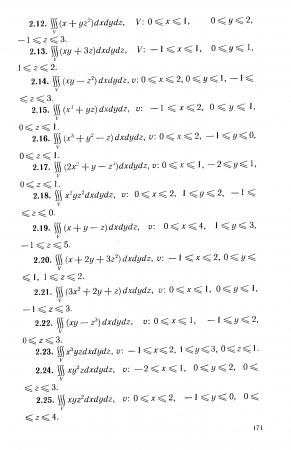 2.12. ∭(x + yz²)dxdydz, V: 0 ⩽ x ⩽ 1, 0 ⩽ y ⩽ 2,
V
−1 ⩽ z ⩽ 3.
2.13. ∭(xy + 3z)dxdydz, V: −1 ⩽ x ⩽ 1, 0 ⩽ y ⩽ 1,
V
1 ⩽ z ⩽ 2.
2.14. ∭(xy − z²)dxdydz, v: 0 ⩽ x ⩽ 2, 0 ⩽ y ⩽ 1, −1 ⩽
V
⩽ z ⩽ 3.
2.15. ∭( + yz)dxdydz, v: −1 ⩽ x ⩽ 2, 0 ⩽ y ⩽ 1,
V
0 ⩽ z ⩽ 1.
2.16. ∭( + y² − z)dxdydz, v: 0 ⩽ x ⩽ 2, −1 ⩽ y ⩽ 0,
V
0 ⩽ z ⩽ 1.
2.17. ∭(2x² + y − )dxdydz, v: 0 ⩽ x ⩽ 1, −2 ⩽ y ⩽ 1,
V
0 ⩽ z ⩽ 1.
2.18. ∭ x²yz²dxdydz, v: 0 ⩽ x ⩽ 2, 1 ⩽ y ⩽ 2, −1 ⩽
V
⩽ z ⩽ 0.
2.19. ∭(x + y − z)dxdydz, v: 0 ⩽ x ⩽ 4, 1 ⩽ y ⩽ 3,
V
−1 ⩽ z ⩽ 5.
2.20. ∭(x + 2y + 3z²)dxdydz, v: −1 ⩽ x ⩽ 2, 0 ⩽ y ⩽
V
⩽ 1, 1 ⩽ z ⩽ 2.
2.21. ∭(3x² + 2y + z)dxdydz, v: 0 ⩽ x ⩽ 1, 0 ⩽ y ⩽ 1,
V
−1 ⩽ z ⩽ 3.
2.22. ∭(xy − z³)dxdydz, v: 0 ⩽ x ⩽ 1, −1 ⩽ y ⩽ 2,
V
0 ⩽ z ⩽ 3.
2.23. ∭ x³yzdxdydz, v: −1 ⩽ x ⩽ 2, 1 ⩽ y ⩽ 3, 0 ⩽ z ⩽ 1.
V
2.24. ∭ xy²zdxdydz, v: −2 ⩽ x ⩽ 1, 0 ⩽ y ⩽ 2, 0 ⩽
V
⩽ z ⩽ 3.
2.25. ∭ xyz²dxdydz, v: 0 ⩽ x ⩽ 2, −1 ⩽ y ⩽ 0, 0 ⩽
V
⩽ z ⩽ 4.
171